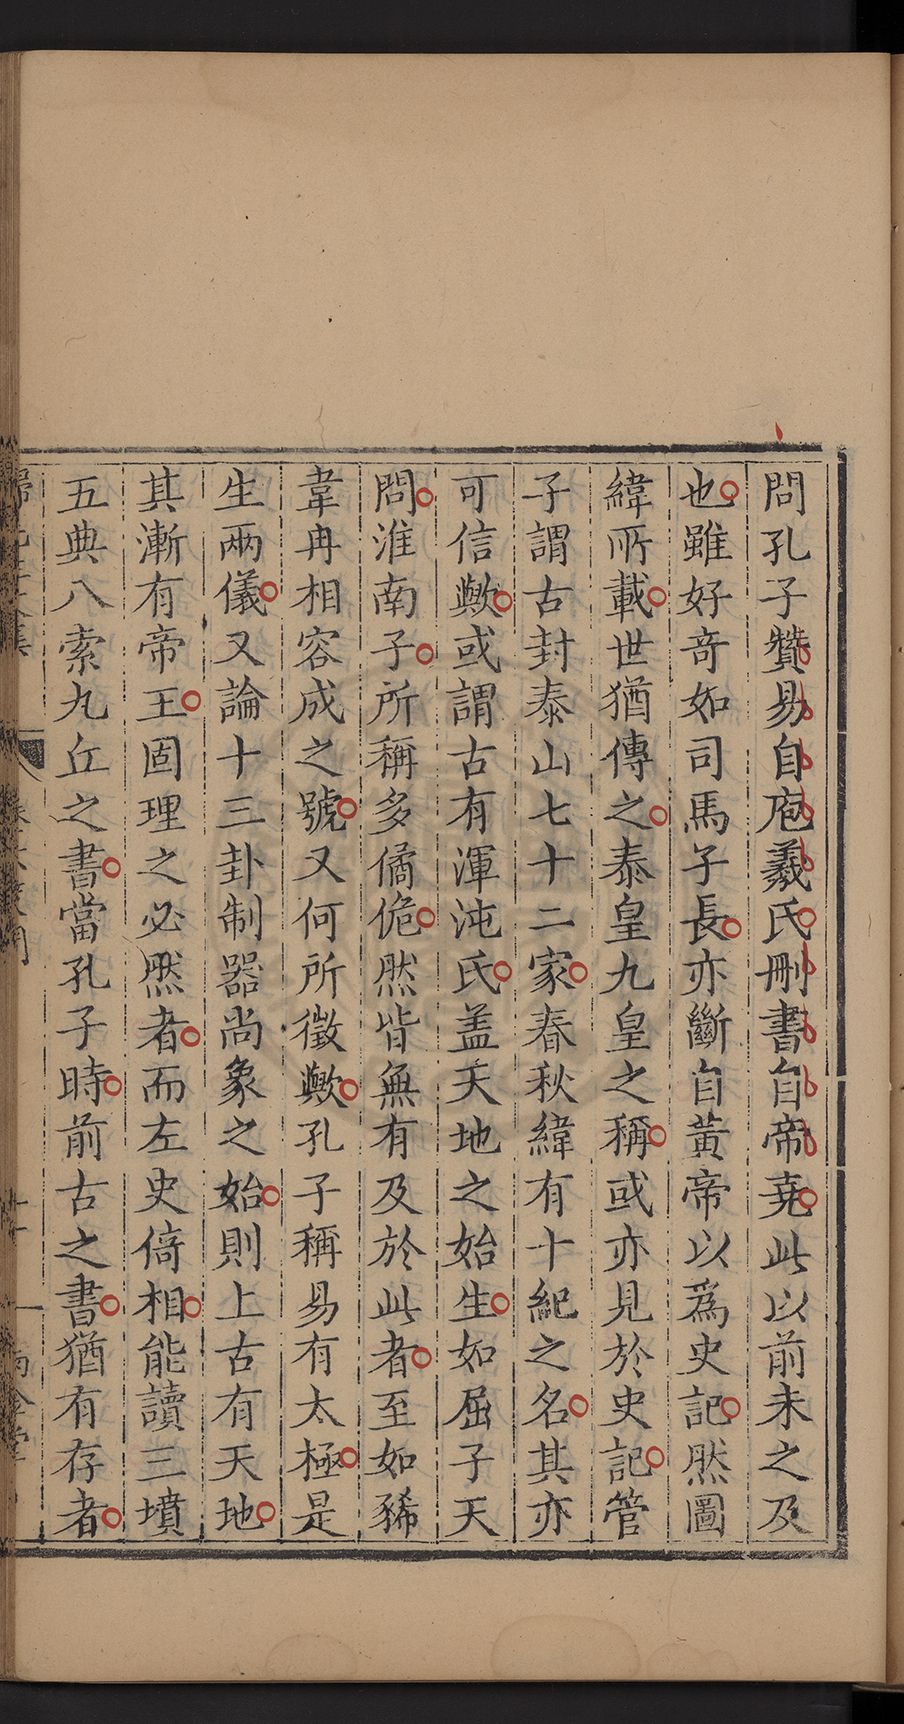 問孔子贊易自庖羲氏刪書自帝堯此以前未之及
也雖好奇如司馬子長亦斷自黃帝以爲史記然圖
緯所載世猶傳之泰皇九皇之稱或亦見於史記管
子謂古封泰山七十二家春秋緯有十紀之名其亦
可信歟或謂古有渾沌氏盖天地之始生如屈子天
問淮南子所稱多僪佹然皆無有及於此者至如豨
韋冉相容成之號又何所徵歟孔子稱易有太極是
生兩儀又論十三卦制器尚象之始則上古有天地
其漸有帝王固理之必然者而左史倚相能讀三墳
五典八索九丘之書當孔子時前古之書猶有存者